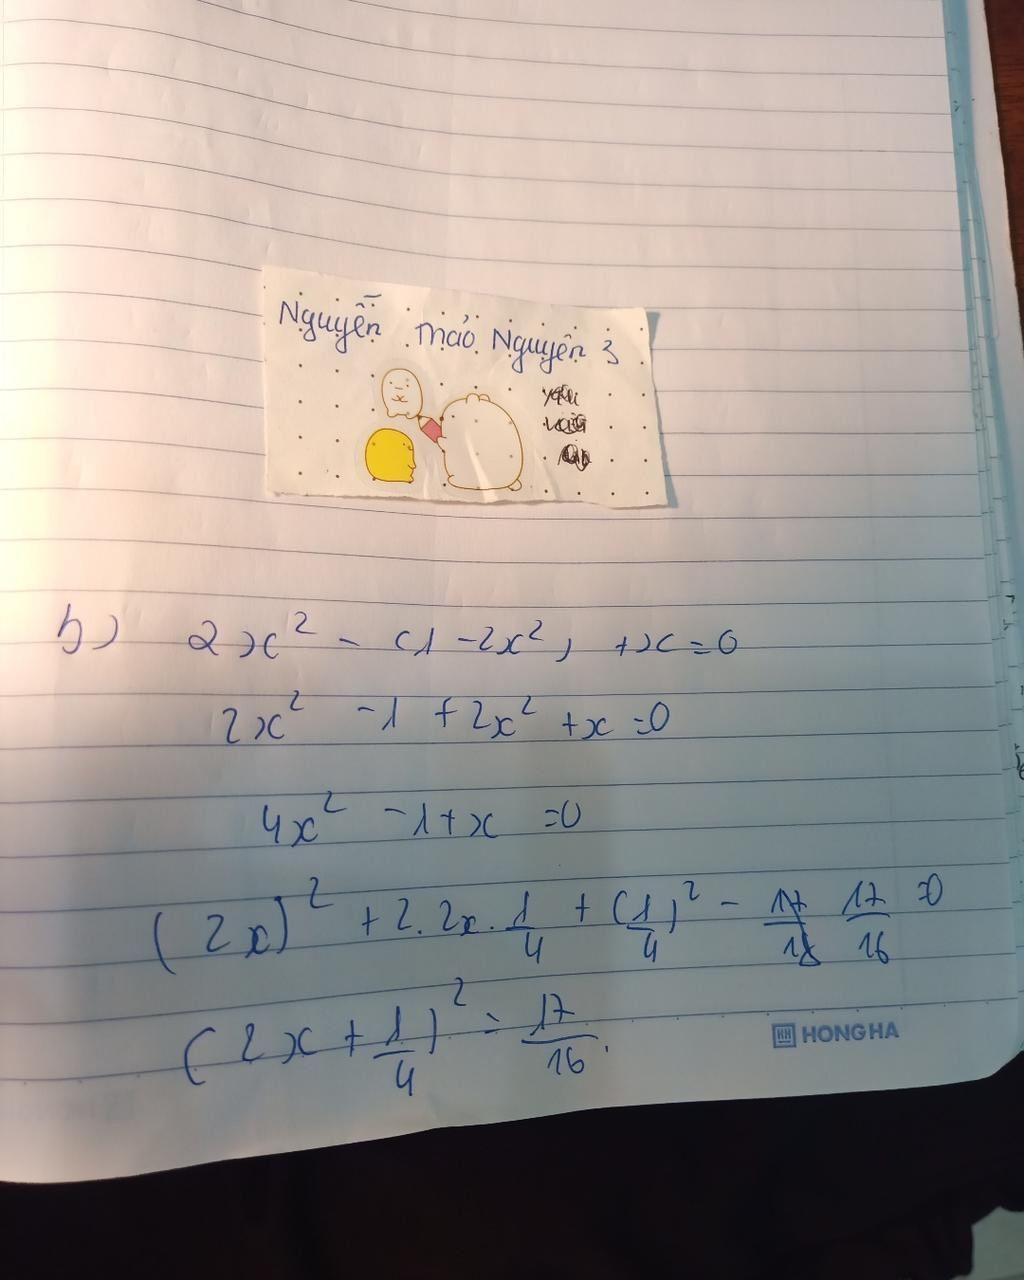 Nguyễn Thảo Nguyên 3
b) 2x² - (1 - 2x²) + x = 0
2x² - 1 + 2x² + x = 0
4x² - 1 + x = 0
(2x)² + 2. 2x. 1/4 + (1/4)² - 17/16 = 0
(2x + 1/4)² = 17/16.
HONG HA